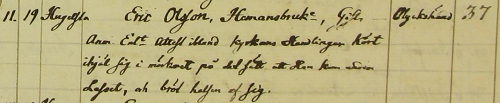 11. 19 Hugelsta Eric Olsson, Hemansbruk^e, Gift. Olyckshänd 37
Anm. Enl^t Attest ibland kyrkans Handlingar Kört
ihjäl sig i mörkret på det sätt att Han kom under
Lasset, och bröt halsen af sig.